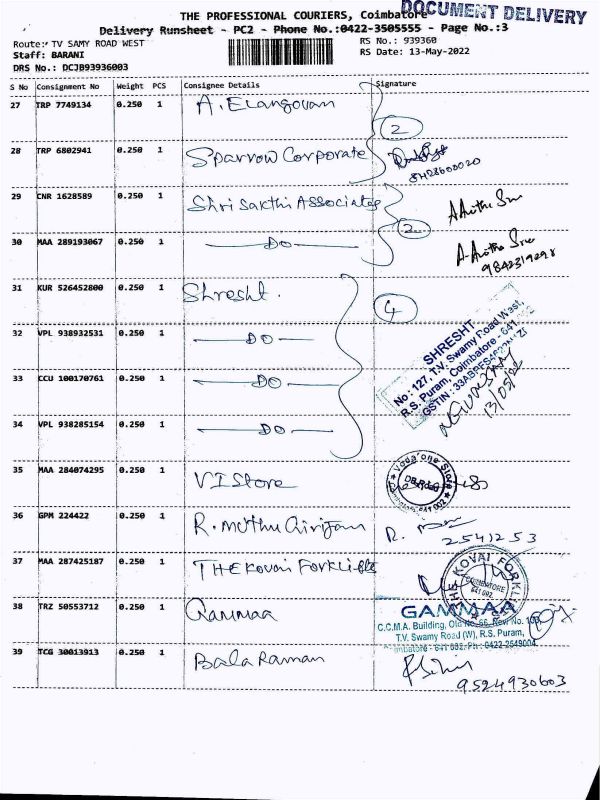 THE PROFESSIONAL COURIERS, Coimbatore
DOCUMENT DELIVERY
Delivery Runsheet - PC2 - Phone No.:0422-3505555 - Page No.:3
Route: TV SAMY ROAD WEST
RS No.: 939360
Staff: BARANI
RS Date: 13-May-2022
DRS No.: DCJB93936003
S No Consignment No Weight PCS Consignee Details Signature
27 TRP 7749134 0.250 1 A. Elangovan
2
28 TRP 6802941 0.250 1 Sparrow Corporate
29 CNR 1628589 0.250 1 Shri Sakthi Associates
2
30 MAA 289193067 0.250 1 DO
9842319298
31 KUR 526452800 0.250 1 Shresht.
4
32 VPL 938932531 0.250 1 DO
SHRESHT
No : 127, T.V. Swamy Road West,
R.S. Puram, Coimbatore - 641
GSTIN :
13/05/22
33 CCU 100170761 0.250 1 DO
34 VPL 938285154 0.250 1 DO
35 MAA 284074295 0.250 1 VI Store
Vodafone Store
36 GPM 224422 0.250 1 R. Muthu Girijan R.
2541253
37 MAA 287425187 0.250 1 THE Kovai Forklifts
THE KOVAI FORKLIFTS
COIMBATORE
641 002
38 TRZ 50553712 0.250 1 Gammaa
GAMMAA
C.C.M.A. Building, Old No. 66, New No.
T.V. Swamy Road (W), R.S. Puram,
Coimbatore - 641 002. Ph : 0422-2549004
39 TCG 30013913 0.250 1 Bala Raman
9524930603